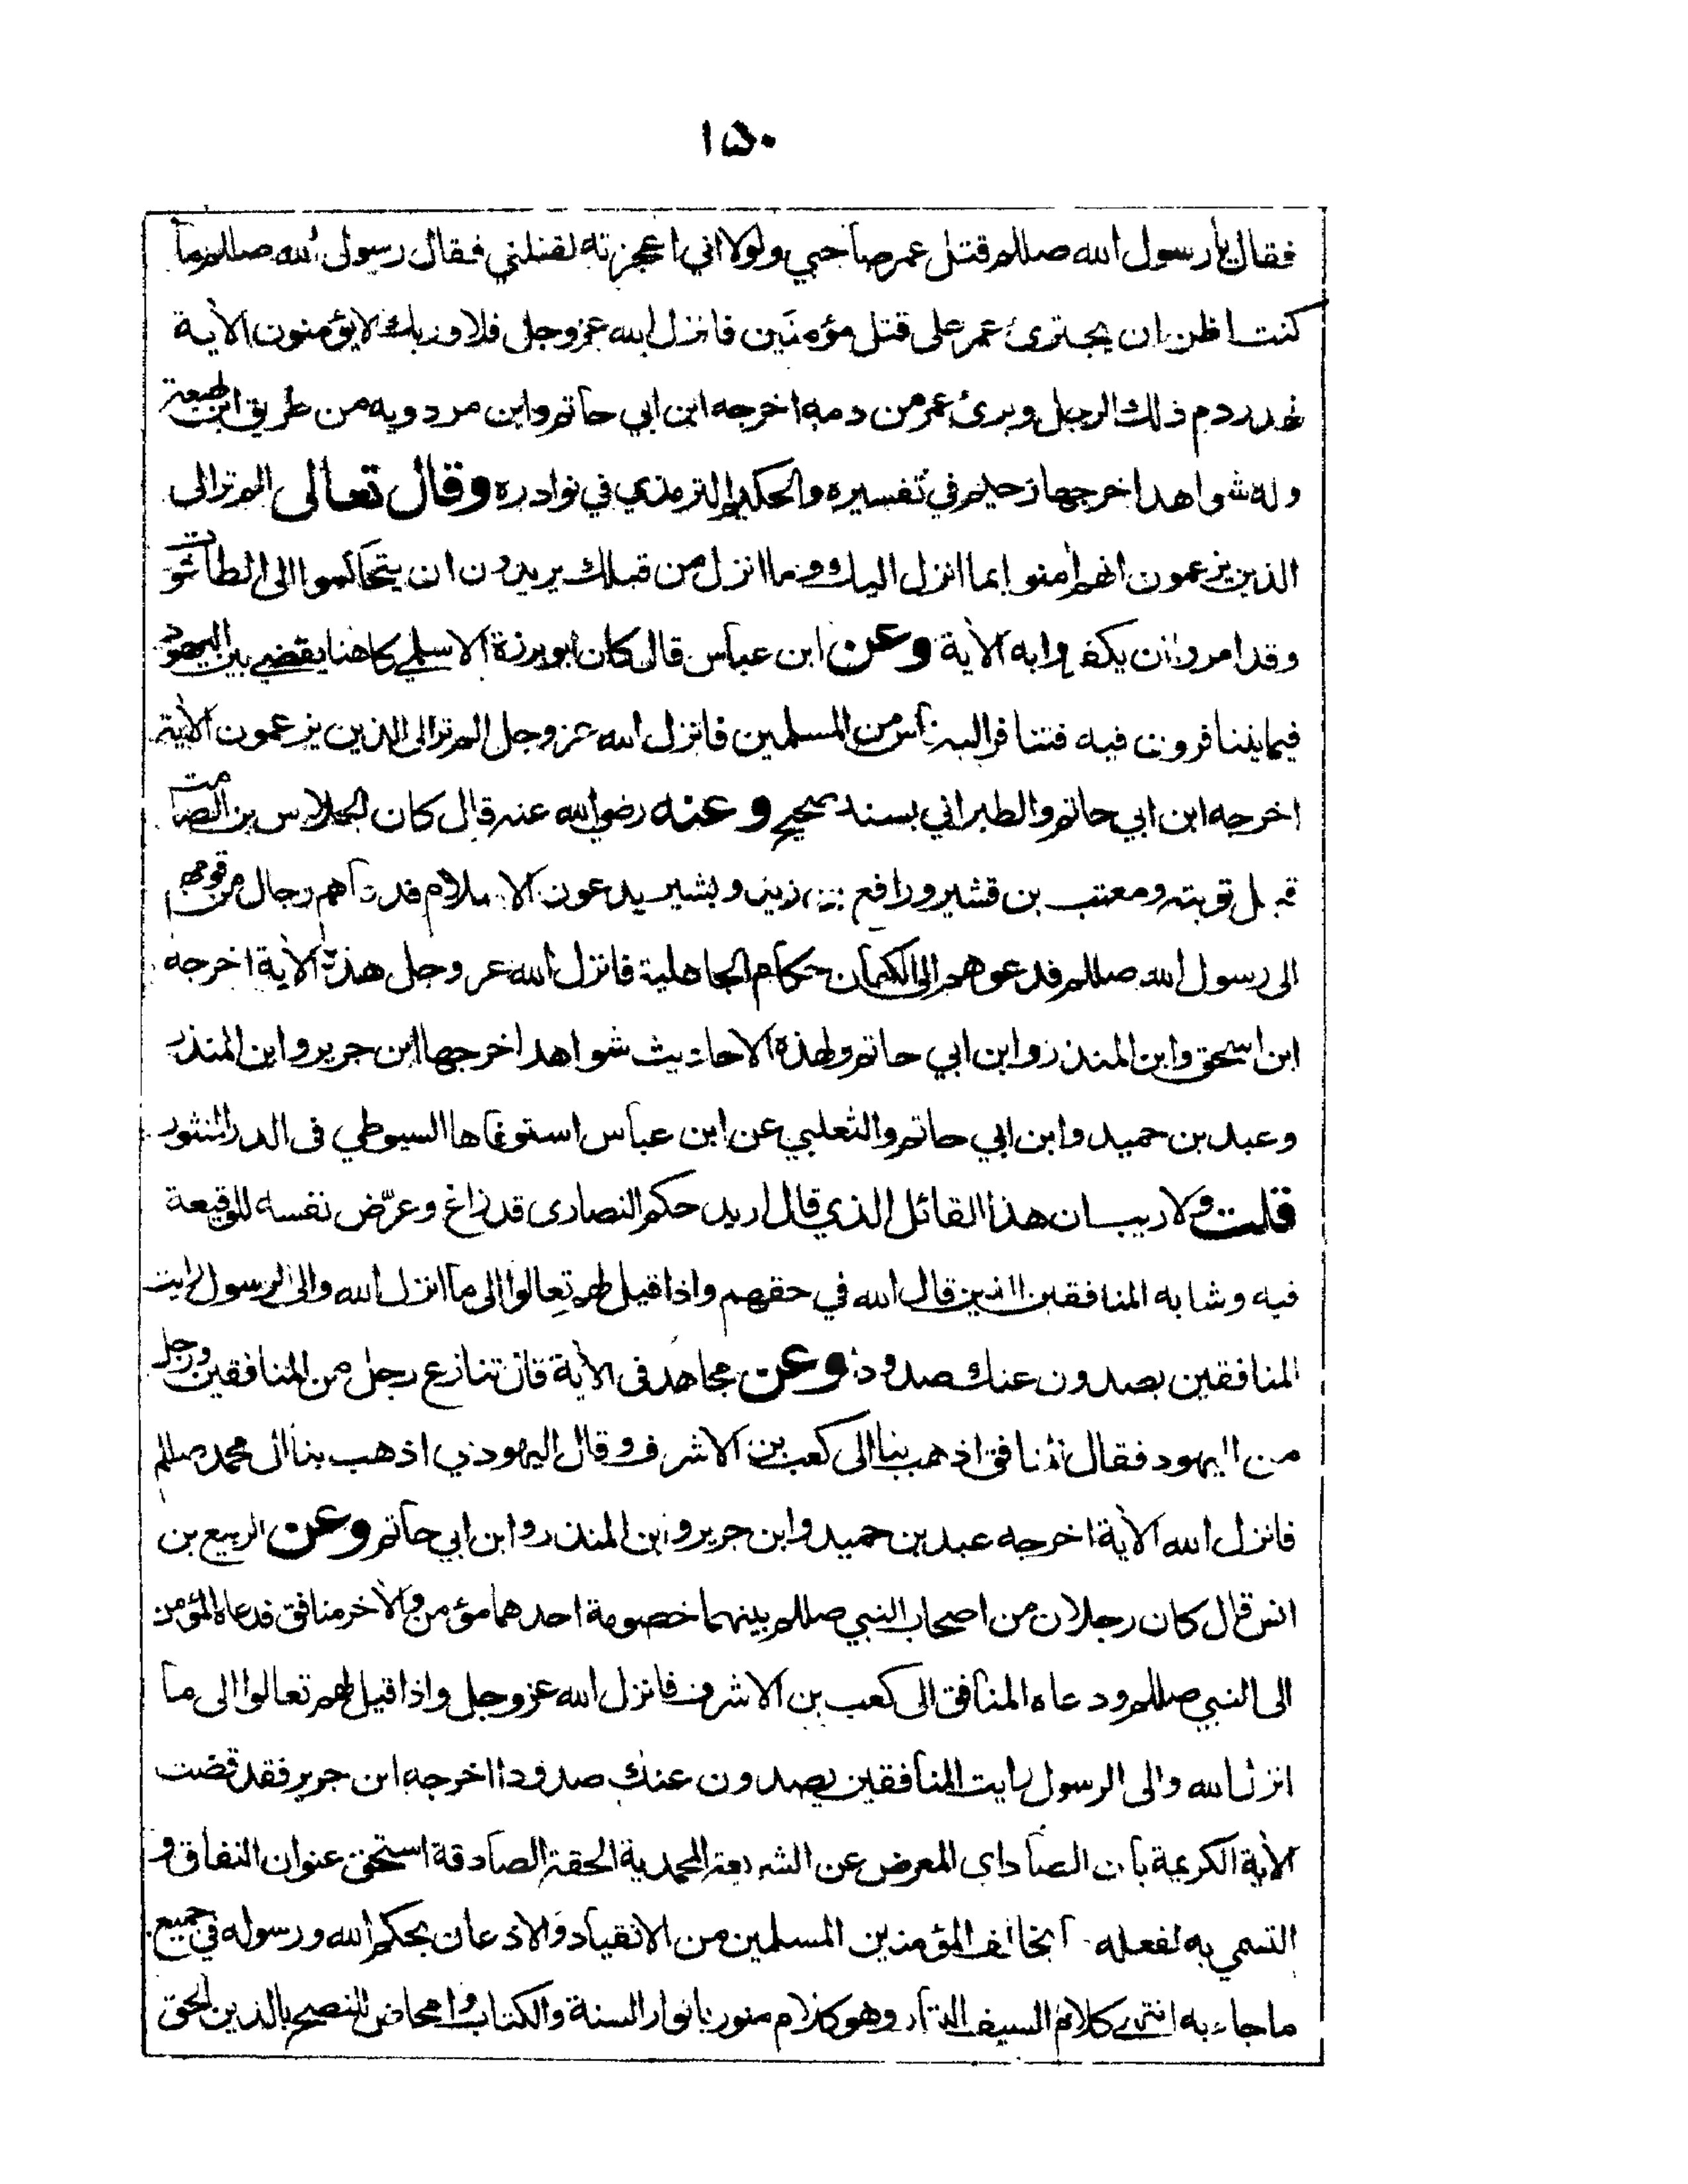 ١٥٠
فقال يا رسول الله صللم قتل عمر صاحبي ولولا اني اعجزته لقتلني فقال رسول الله صللم ما
كنت اظن ان يجترئ عمر على قتل مؤمنَين فانزل الله عزوجل فلا وربك لا يؤمنون الآية
فهدر دم ذلك الرجل وبرئ عمر من دمه اخرجه ابن ابي حاتم وابن مردويه من طريق ابن لهيعة
وله شواهد اخرجها دحيم في تفسيره والحكيم الترمذي في نوادره وقال تعالى الم تر الى
الذين يزعمون انهم امنوا بما انزل اليك وما انزل من قبلك يريدون ان يتحاكموا الى الطاغوت
وقد امروا ان يكفروا به الآية وعن ابن عباس قال كان ابو برزة الاسلمي كاهنا يقضي بين اليهود
فيما يتنافرون فيه فتنافر اليه ناس من المسلمين فانزل الله عزوجل الم تر الى الذين يزعمون الآية
اخرجه ابن ابي حاتم والطبراني بسند صحيح وعنه رضي الله عنه قال كان الجلاس بن الصامت
قبل توبته ومعتب بن قشير ورافع بن زيد وبشير يدعون الاسلام فدعاهم رجال من قومهم
الى رسول الله صللم فدعوهم الى الكهان حكام الجاهلية فانزل الله عزوجل هذه الآية اخرجه
ابن اسحق وابن المنذر وابن ابي حاتم ولهذه الاحاديث شواهد اخرجها ابن جرير وابن المنذر
وعبد بن حميد وابن ابي حاتم والثعلبي عن ابن عباس استوفاها السيوطي فى الدر المنثور
قلت ولا ريب ان هذا القائل الذي قال اريد حكم النصارى قد زاغ وعرّض نفسه للوقيعة
فيه وشابه المنافقين الذين قال الله في حقهم واذا قيل لهم تعالوا الى ما انزل الله والى الرسول رايت
المنافقين يصدون عنك صدودا وعن مجاهد فى الآية قال تنازع رجل من المنافقين ورجل
من اليهود فقال المنافق اذهب بنا الى كعب بن الاشرف وقال اليهودي اذهب بنا الى محمد صللم
فانزل الله الآية اخرجه عبد بن حميد وابن جرير وابن المنذر وابن ابي حاتم وعن الربيع بن
انس قال كان رجلان من اصحاب النبي صللم بينهما خصومة احدهما مؤمن والآخر منافق فدعاه المؤمن
الى النبي صللم ودعاه المنافق الى كعب بن الاشرف فانزل الله عزوجل واذا قيل لهم تعالوا الى ما
انزل الله والى الرسول رايت المنافقين يصدون عنك صدودا اخرجه ابن جرير فقد قضت
الآية الكريمة بان الصاد اى المعرض عن الشريعة المحمدية الحقة الصادقة استحق عنوان النفاق و
التسمي به لفعله ما يخالف المؤمنين المسلمين من الانقياد والاذعان بحكم الله ورسوله في جميع
ما جاء به انتهى كلام السيف البتار وهو كلام منور بانوار السنة والكتاب وامحاض للنصح بالدين الحق